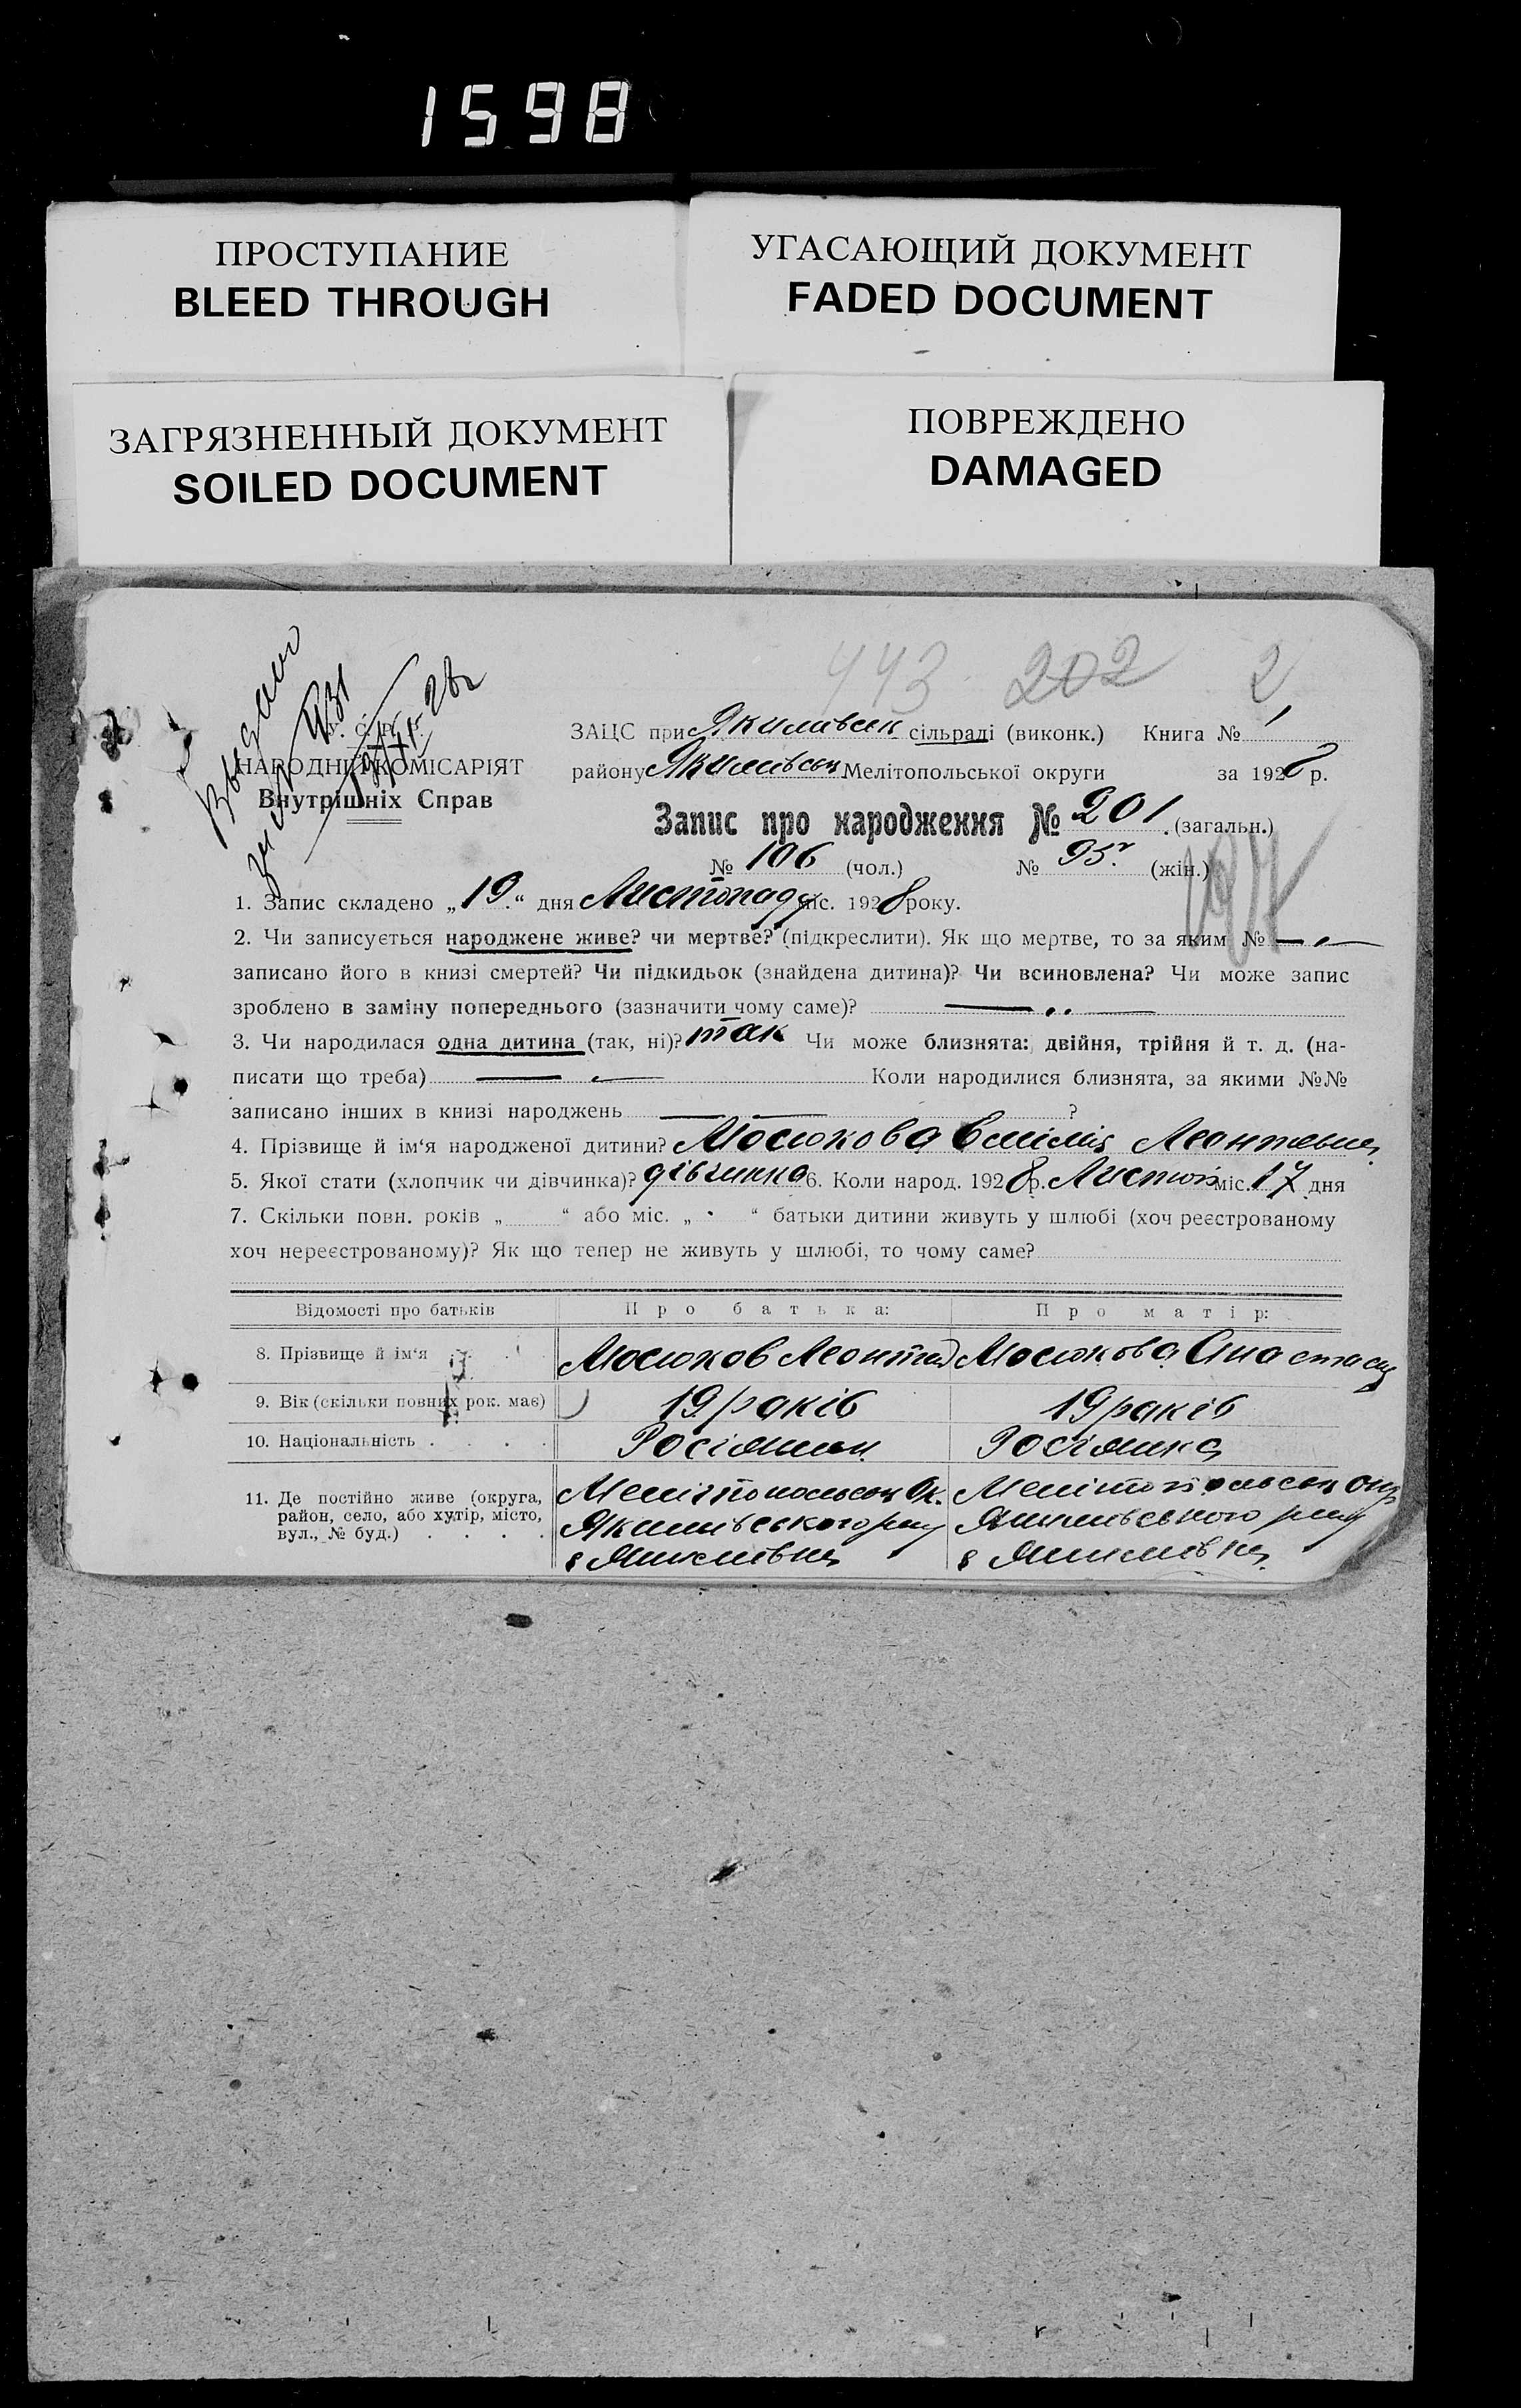 1598
ПРОСТУПАНИЕ
BLEED THROUGH
УГАСАЮЩИЙ ДОКУМЕНТ
FADED DOCUMENT
ЗАГРЯЗНЕННЫЙ ДОКУМЕНТ
SOILED DOCUMENT
ПОВРЕЖДЕНО
DAMAGED
443 202 2
ЗАЦС при Якимівськ сільраді (виконк.) Книга № 1
НАРОДНІЙ КОМІСАРІЯТ
району Якимівськ Мелітопольської округи за 1928 р.
Внутрішніх Справ
Запис про народження № 201 (загальн.)
№ 106 (чол.) № 95 (жін.)
197
1. Запис складено „19“ дня Листопада міс. 1928 року.
2. Чи записується народжене живе? чи мертве? (підкреслити). Як що мертве, то за яким № —
записано його в книзі смертей? Чи підкидьок (знайдена дитина)? Чи всиновлена? Чи може запис
зроблено в заміну попереднього (зазначити чому саме)? —
3. Чи народилася одна дитина (так, ні)? так Чи може близнята: двійня, трійня й т. д. (на-
писати що треба) — Коли народилися близнята, за якими №№
записано інших в книзі народжень — ?
4. Прізвище й ім‘я народженої дитини? Мосюкова Емілія Леонтьевна
5. Якої стати (хлопчик чи дівчинка)? дівчинка 6. Коли народ. 1928 р. Листоп міс. 17 дня
7. Скільки повн. років „ “ або міс. „ “ батьки дитини живуть у шлюбі (хоч реєстрованому
хоч нереєстрованому)? Як що тепер не живуть у шлюбі, то чому саме?
Відомості про батьків Про батька: Про матір:
8. Прізвище й ім‘я Мосюков Леонтий Мосюкова Анастасія
9. Вік (скільки повних рок. має) 19 років 19 років
10. Національність Росіянин Росіянка
11. Де постійно живе (округа,
район, село, або хутір, місто,
вул., № буд.)
Мелітопольськ Ок.
Якимівського рай
с Якимівка
Мелітопольськ Окр
Якимівського рай
с Якимівка